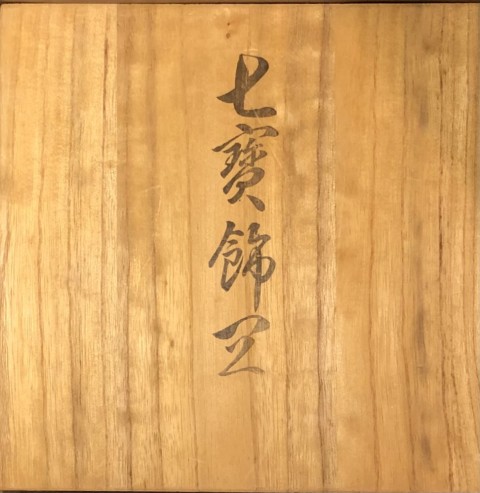 七寶飾皿